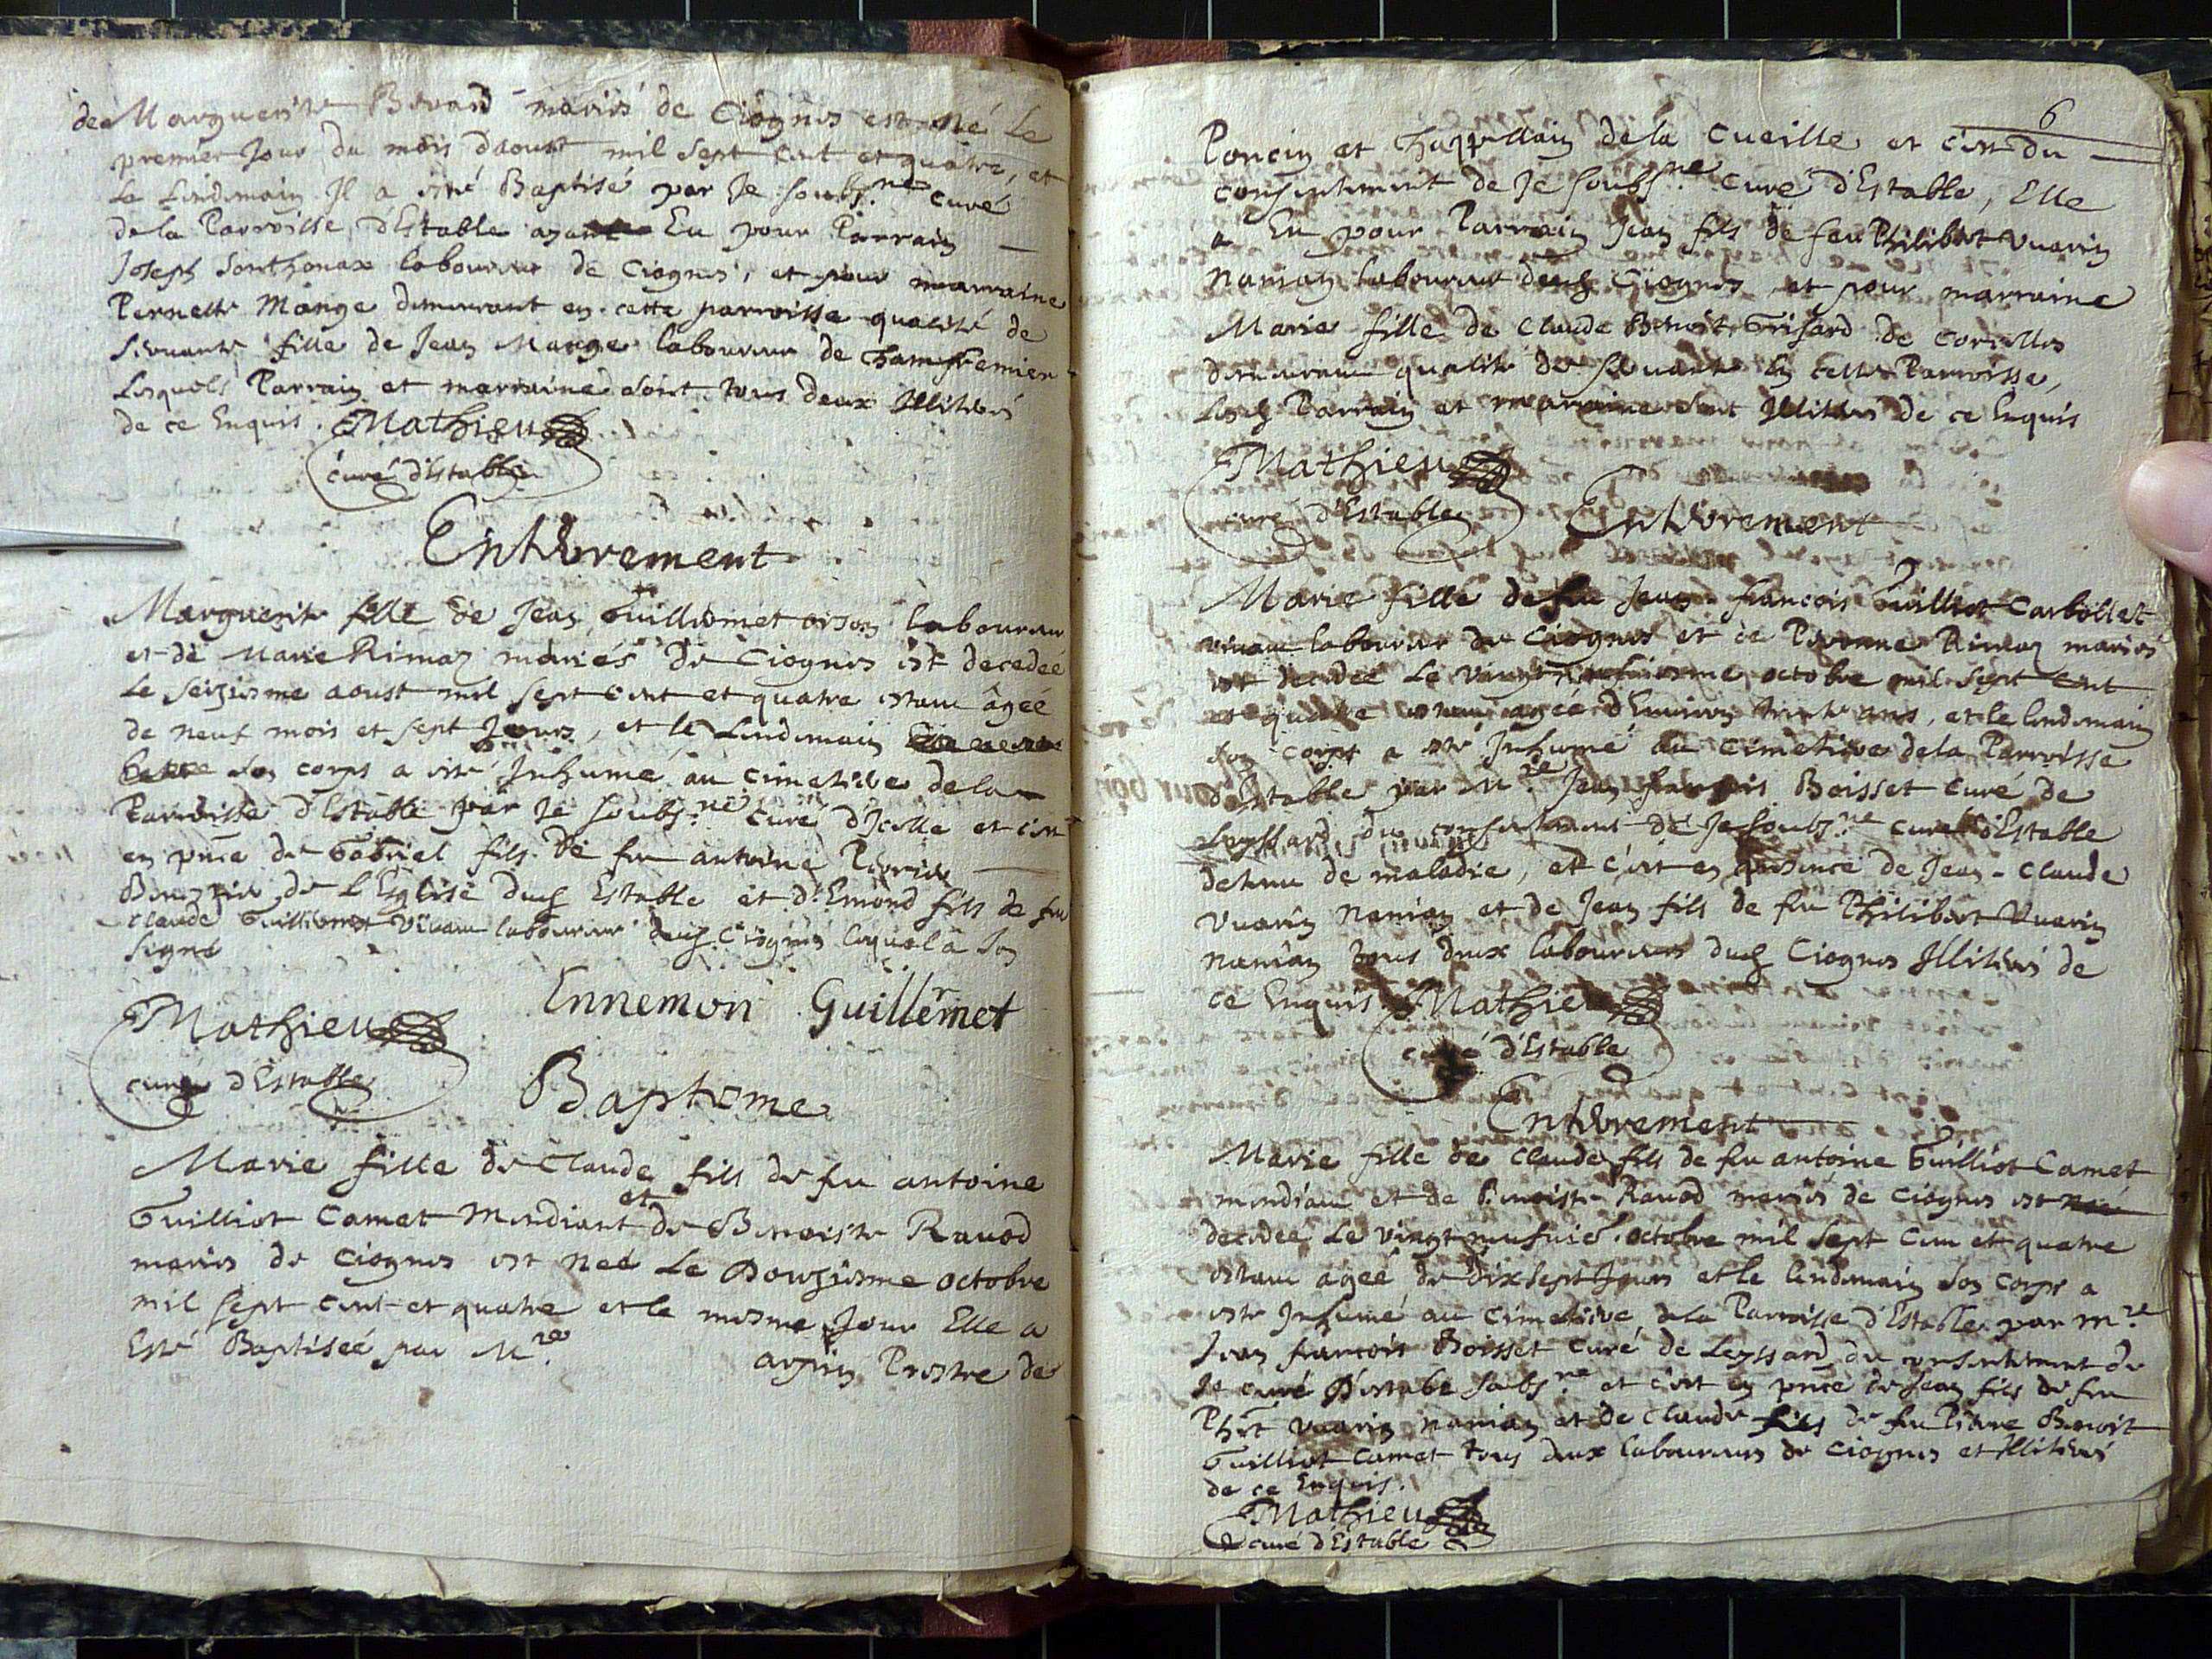 de Marguerite Bovard mariés de Ciognes est né Le
premier Jour du mois d'aoust mil sept cent et quatre, et
Le Lindemain Il a esté Baptisé par Je soubs.né curé
de la Parroisse d'Estable ayant Eu pour Parrain
Joseph Sonthonax laboureur de Ciognes, et pour marraine
Pernette Mange demeurant en cette parroisse qualité de
servante fille de Jean Mange laboureur de Champfremier
Lesquels Parrain et marraine sont tous deux Illiterés
de ce Enquis. Mathieu
curé d'Estable
Enterrement
Marguerite fille de Jean Guilliomet oison laboureur
et de Marie Rimaz mariés de Ciognes est decedeé
Le seiziesme aoust mil sept cent et quatre estant âgeé
de neuf mois et sept Jours, et le Lindemain
son corps a esté Inhumé au cimetiere de la
Parroisse d'Estable par Je soubs.né curé d'Icelle et c'est
en pnce de Gabriel fils de feu antoine
de L'Eglise dud Estable et d'Emond fils de feu
claude Guilliomet vivant laboureur dud Ciognes lequel a son
signé
Ennemon Guillermet
Mathieu
curé d'Estable
Baptesme
Marie fille de Claude fils de feu antoine
Guilliot Camet Mendiant et de Benoiste Ravod
mariés de Ciognes est neé Le Douziesme octobre
mil sept cent et quatre et le mesme Jour Elle a
Esté Baptiseé par M.re arpin Prestre de
6
Poncin et Chappellain de la Cueille et c'est du
consentement de Je soubs.né Curé d'Estable, Elle
a Eu pour Parrain Jean fils de feu Philibert Vuarin
Nanian laboureur dud Ciognes et pour marraine
Marie fille de Claude Benoit Grisard de Corcelles
demeurant qualité de servante En cette Parroisse,
Lesd Parrain et marraine sont Illiterés de ce Enquis
Mathieu
curé d'Estable
Enterrement
Marie fille de feu Jean francois Guilliot Carbollet
vivant laboureur de Ciognes et de Pernonne Rimaz mariés
est decedeé Le vingt octobre mil sept cent
et quatre estant ageé d'Environ trente ans, et le lendemain
son corps a esté Inhumé au cimetiere de la Parroisse
d'Estable par M.re Jean françois Boisset curé de
Leyssard du consentement de Je soubs.né curé d'Estable
detenu de maladie, et c'est en presence de Jean-Claude
Vuarin Nanian et de Jean fils de feu Philibert Vuarin
nanian tous deux laboureurs dud Ciognes Illiterés de
ce Enquis. Mathieu
curé d'Estable
Enterrement
Marie fille de Claude fils de feu antoine Guilliot Camet
mendiant et de Benoiste Ravod mariés de Ciognes est neé
decedeé Le vingt neufvie. octobre mil sept cent et quatre
estant ageé de dix sept Jours et le lendemain son corps a
esté Inhumé au cimetiere de la Parroisse d'Estable par M.re
Jean francois Boisset Curé de Leyssard du consentement de
Je curé d'Estable soubs.né et c'est en pnce de Jean fils de feu
Phet Vuarin nanian et de Claude fils de feu Pierre Benoit
Guilliot Camet tous deux laboureurs de Ciognes et Illiterés
de ce Enquis.
Mathieu
curé d'Estable